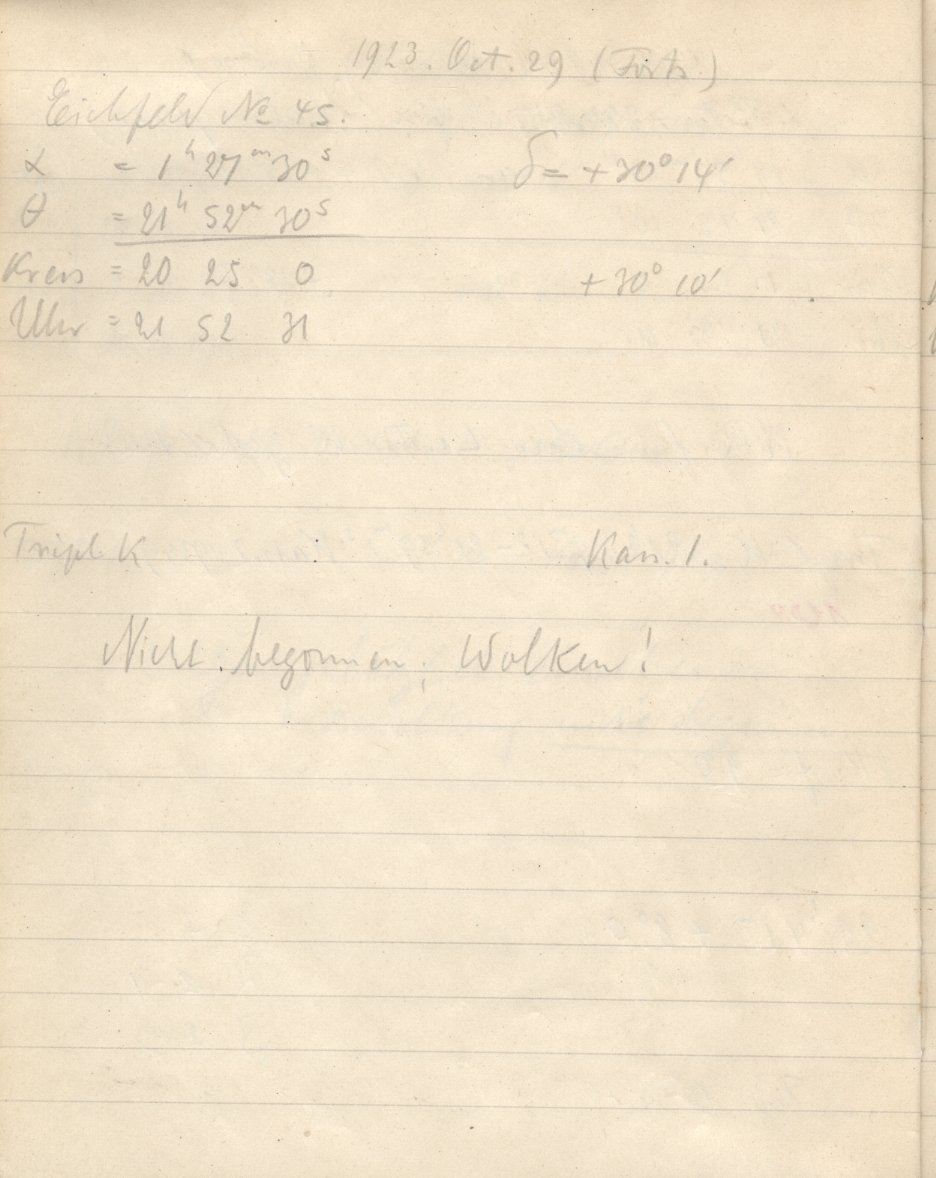 1923. Oct. 29 (Forts.)
Eichfeld No 45.
α = 1h 27m 30s δ = +30° 14'
θ = 21h 52m 30s
Kreis = 20 25 0 +30° 10'
Uhr = 21 52 31
Tripl. K Kass. 1.
Nicht begonnen, Wolken!